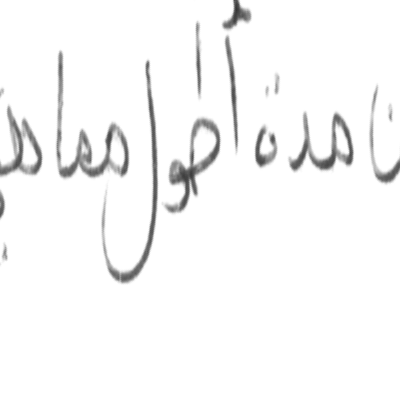 مدة أطول مما